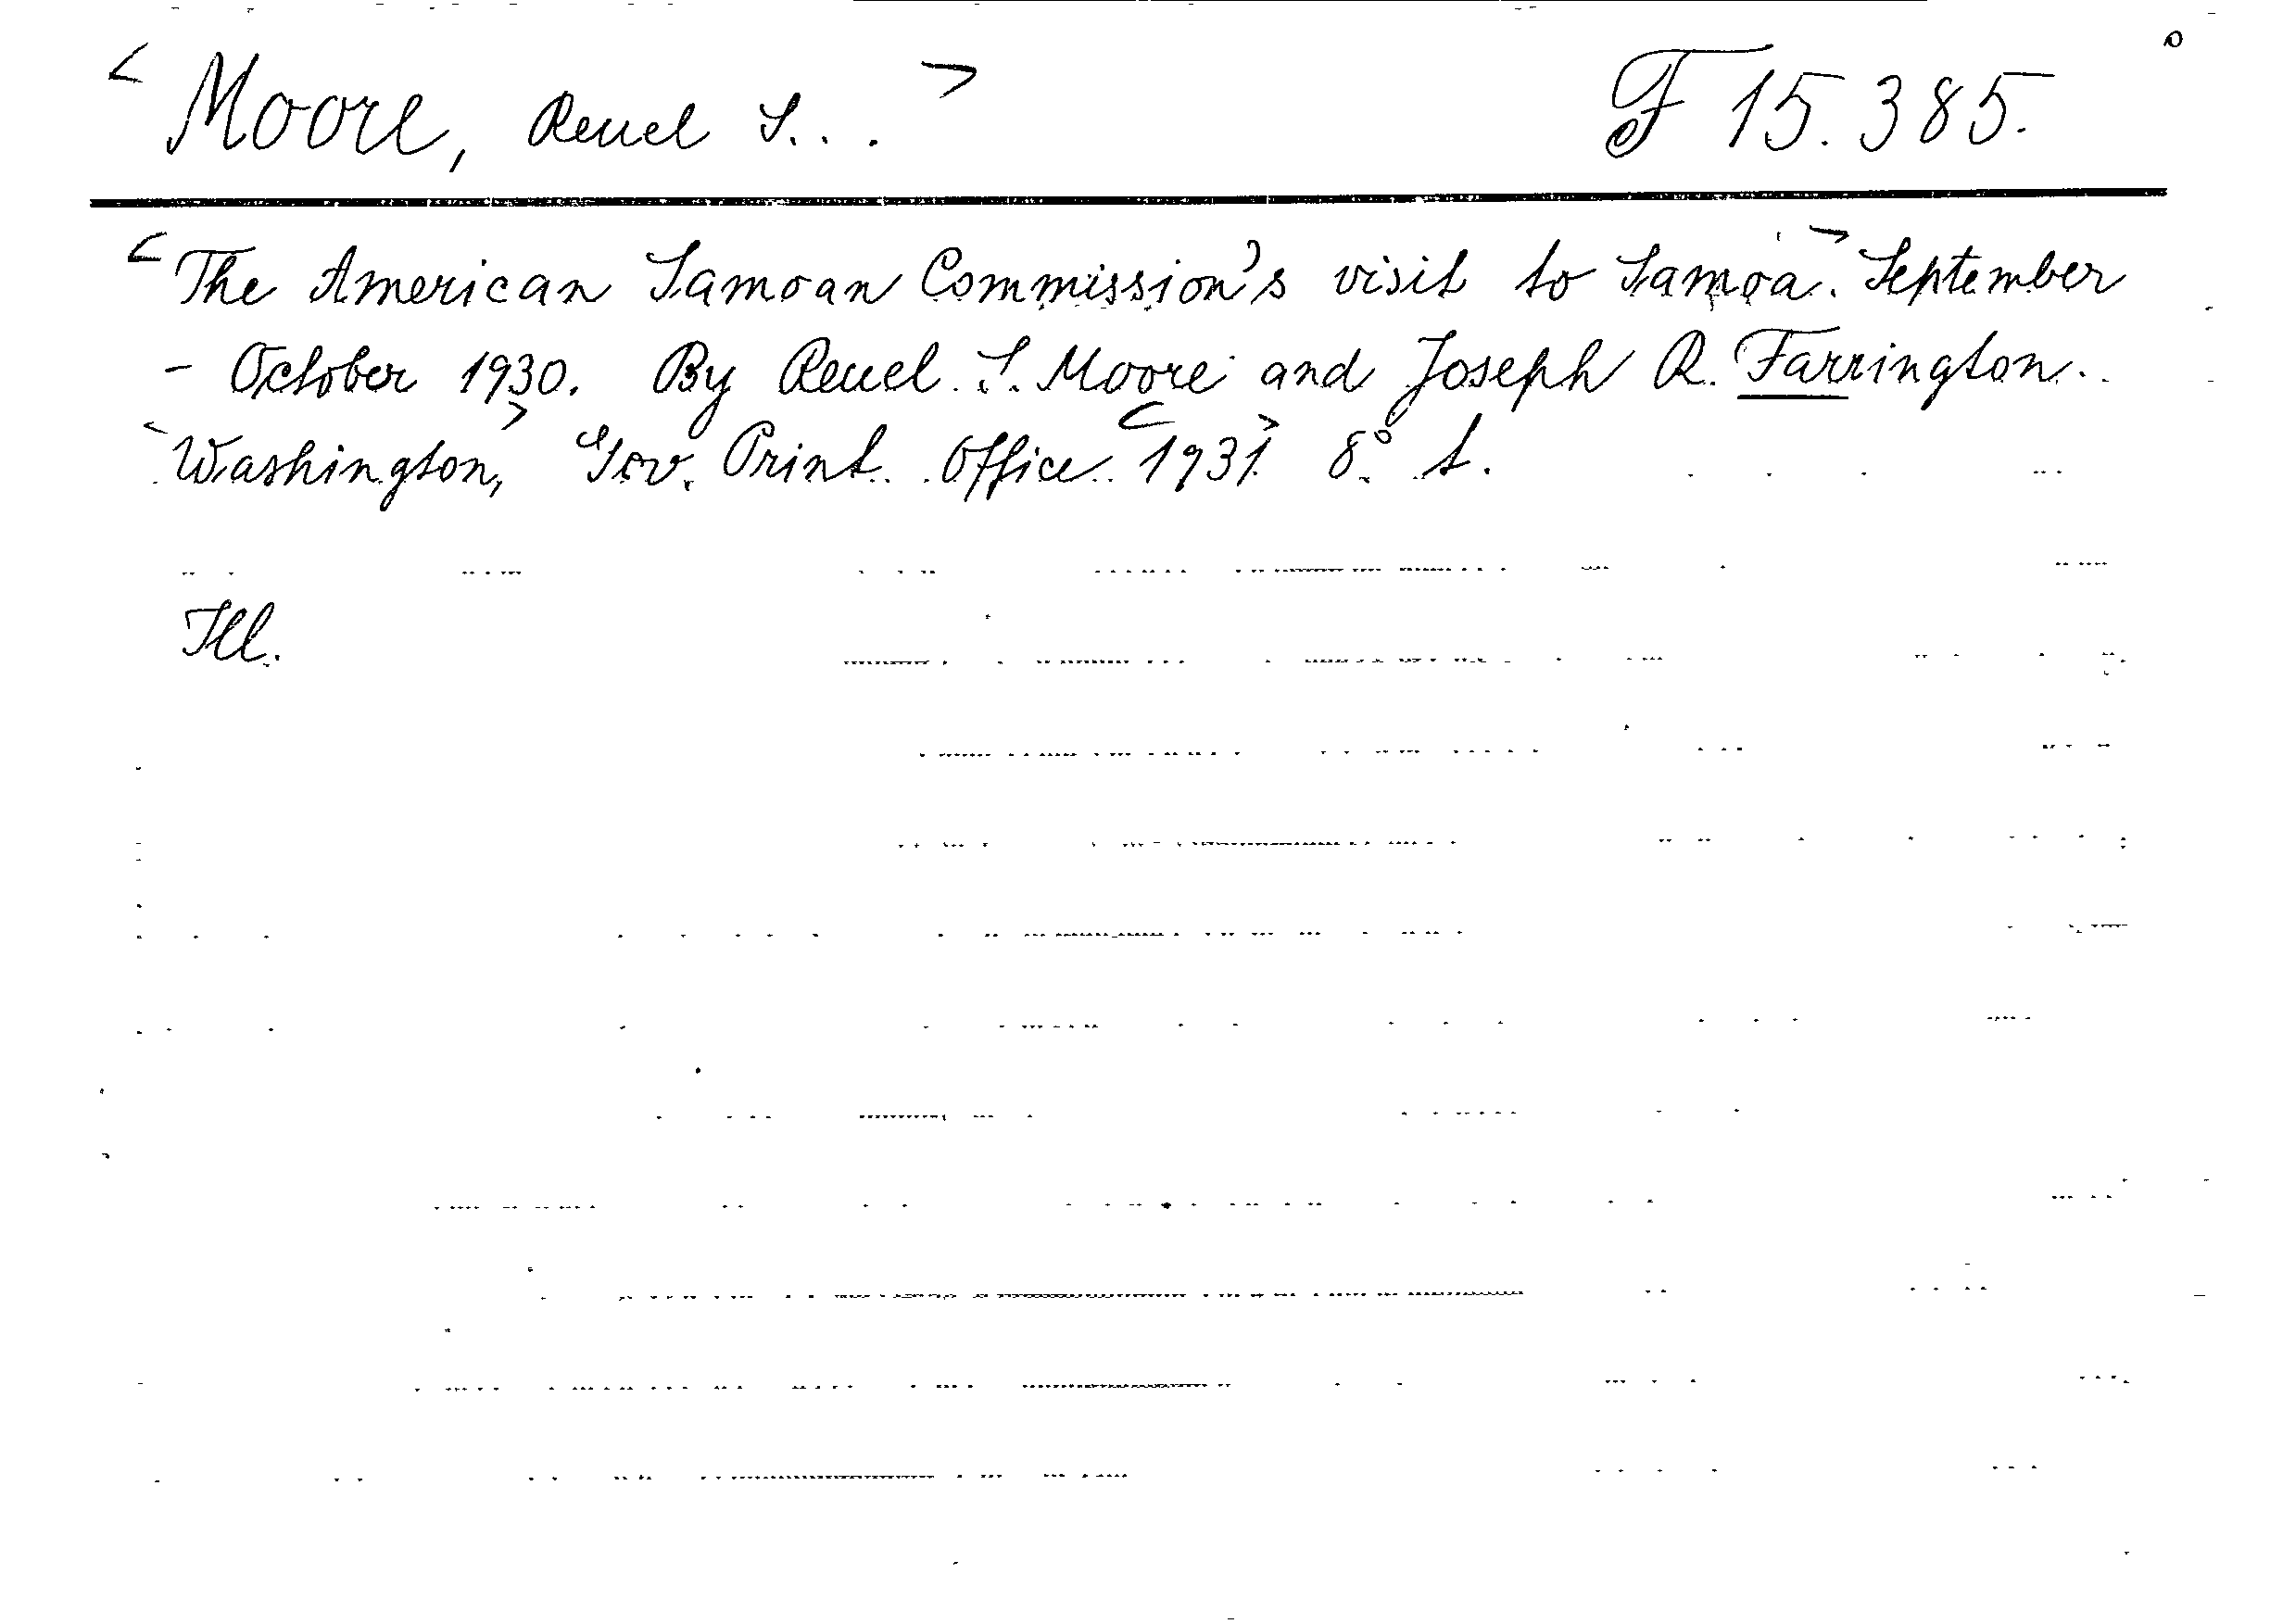 < Moore, Reuel S... > F 15.385.
< The American Samoan Commission's visit to Samoa. > September
- October 1930. By Reuel S. Moore and Joseph R. Farrington.
< Washington, > Gov. Print. Office < 1931. > 8° t.
Ill.